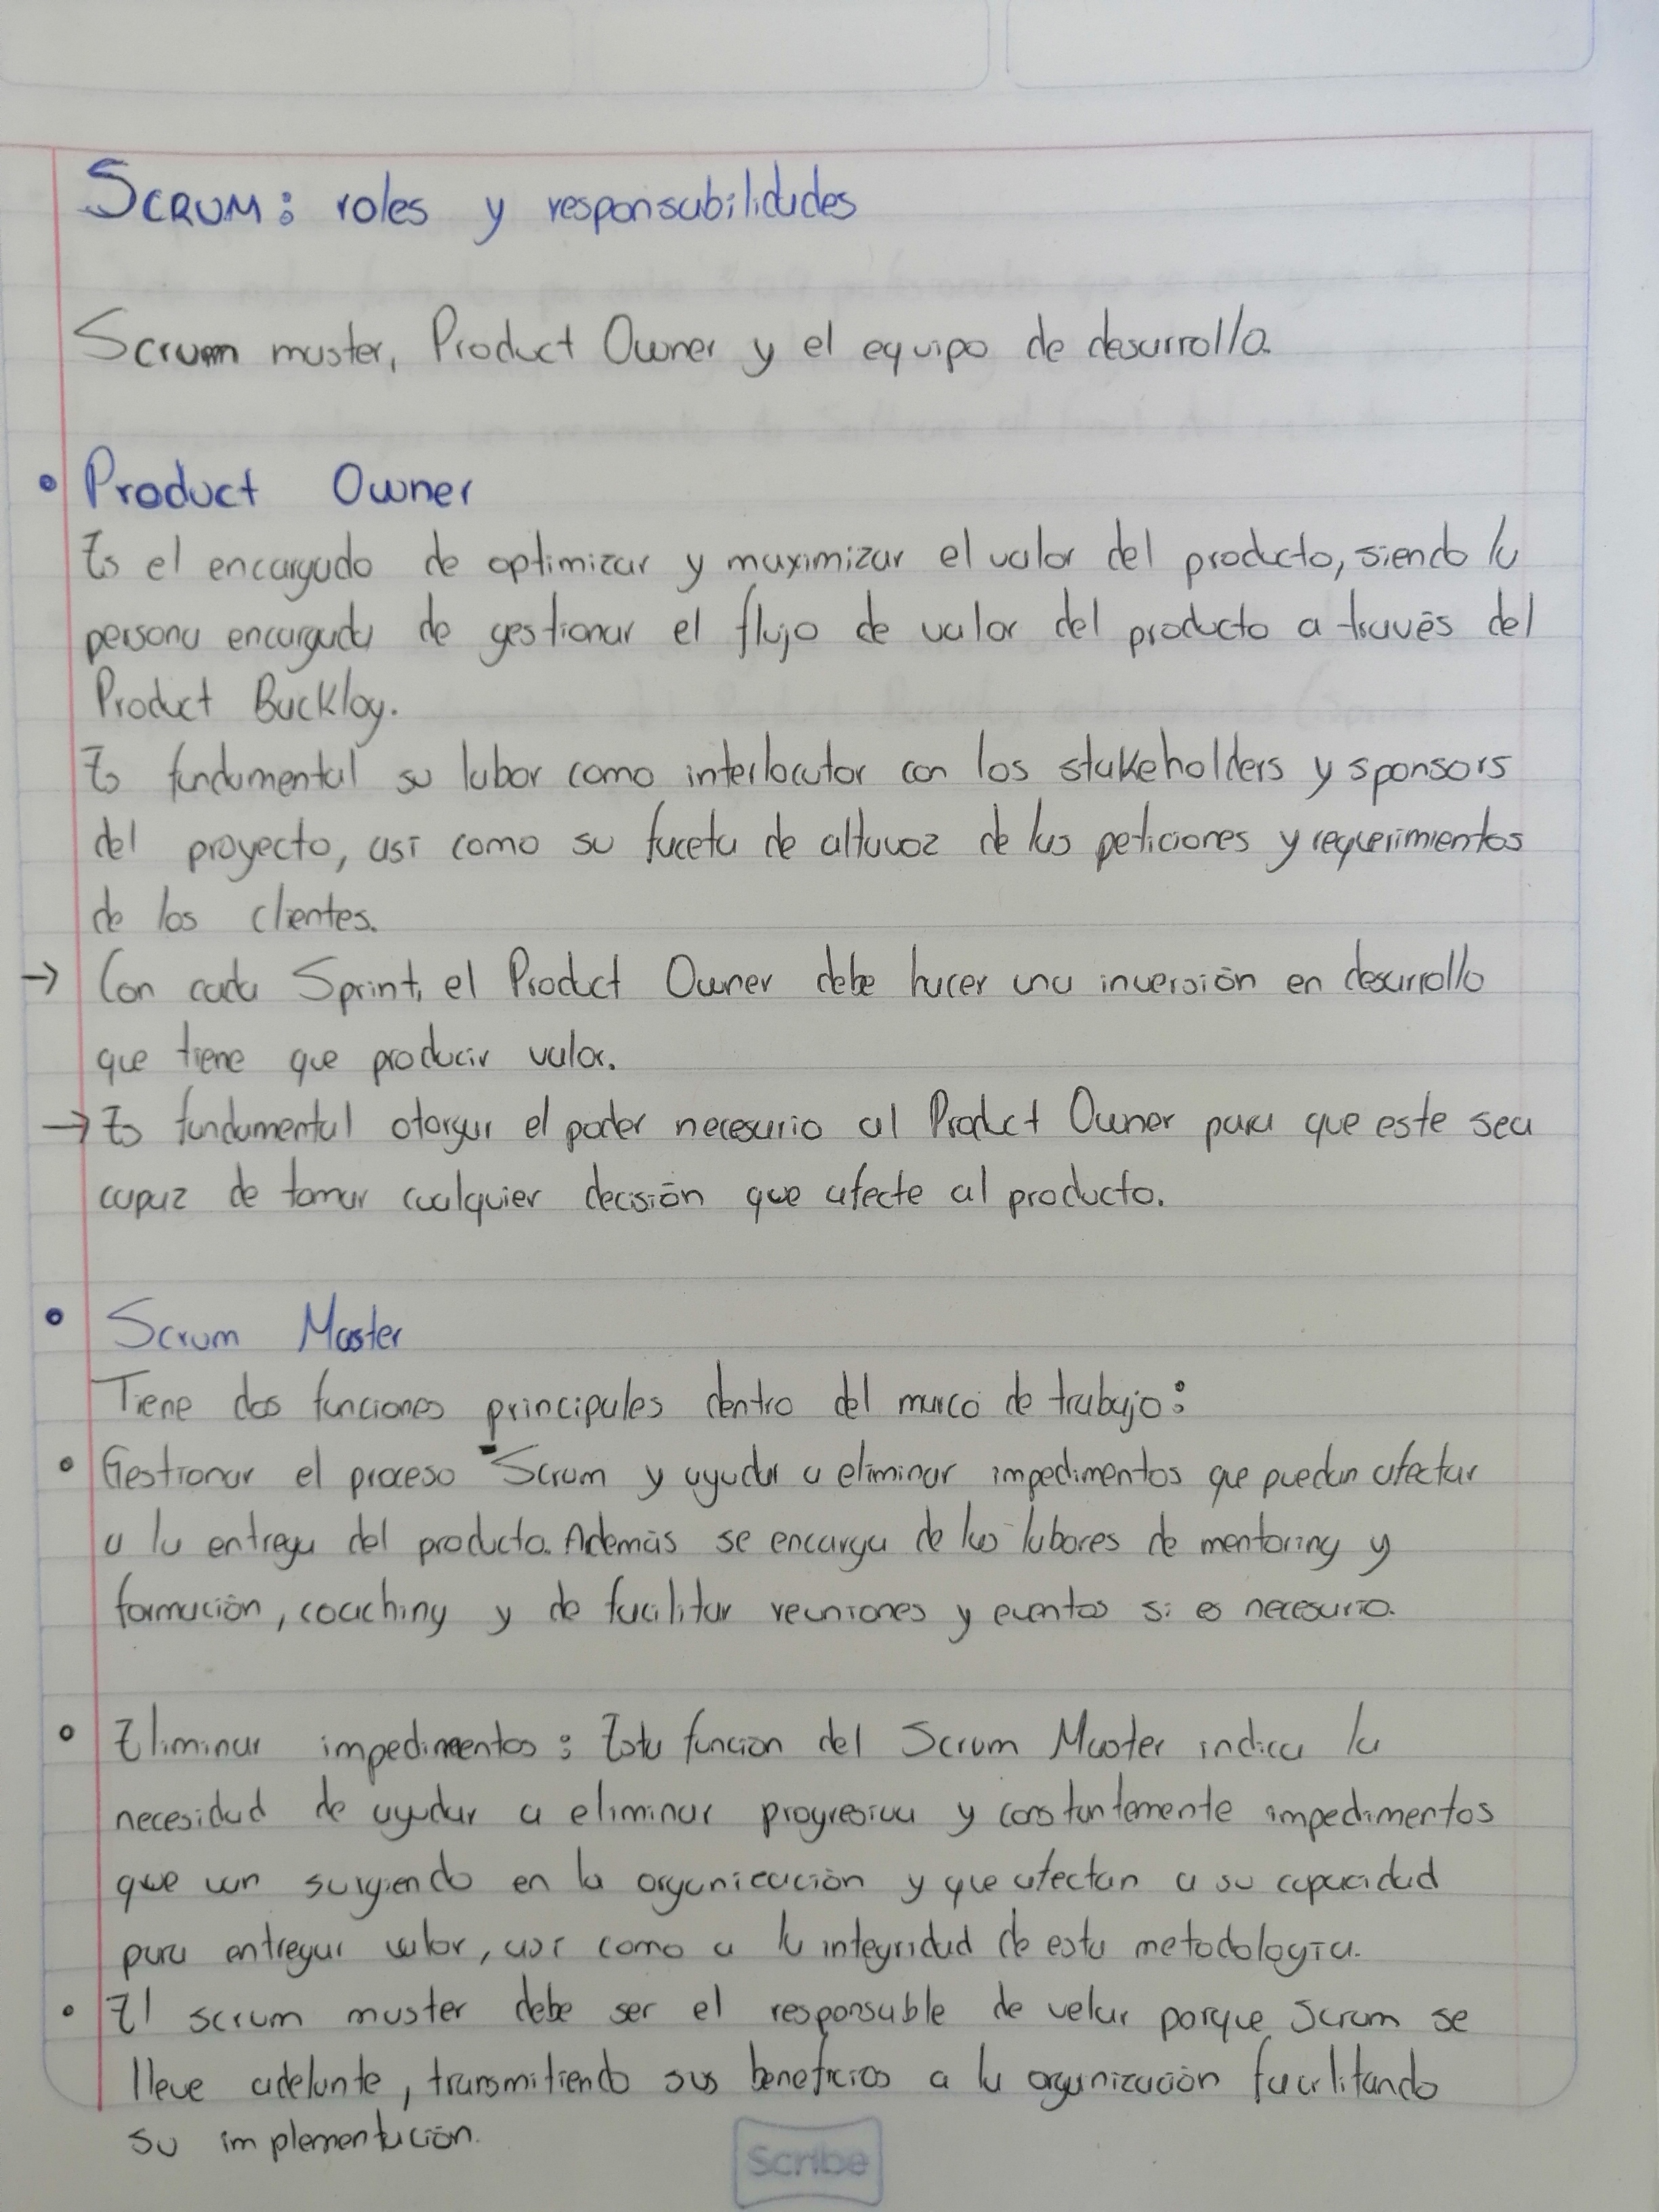 SCRUM: roles y responsabilidades
Scrum master, Product Owner y el equipo de desarrollo.
• Product Owner
Es el encargado de optimizar y maximizar el valor del producto, siendo la
persona encargada de gestionar el flujo de valor del producto a través del
Product Backlog.
Es fundamental su labor como interlocutor con los stakeholders y sponsors
del proyecto, así como su faceta de altavoz de las peticiones y requerimientos
de los clientes.
→ Con cada Sprint, el Product Owner debe hacer una inversión en desarrollo
que tiene que producir valor.
→ Es fundamental otorgar el poder necesario al Product Owner para que este sea
capaz de tomar cualquier decisión que afecte al producto.
• Scrum Master
Tiene dos funciones principales dentro del marco de trabajo:
• Gestionar el proceso Scrum y ayudar a eliminar impedimentos que puedan afectar
a la entrega del producto. Además se encarga de las labores de mentoring y
formación, coaching y de facilitar reuniones y eventos si es necesario.
• Eliminar impedimentos: Esta función del Scrum Master indica la
necesidad de ayudar a eliminar progresiva y constantemente impedimentos
que van surgiendo en la organización y que afectan a su capacidad
para entregar valor, así como a la integridad de esta metodología.
• El scrum master debe ser el responsable de velar porque Scrum se
lleve adelante, transmitiendo sus beneficios a la organización facilitando
su implementación.
Scribe